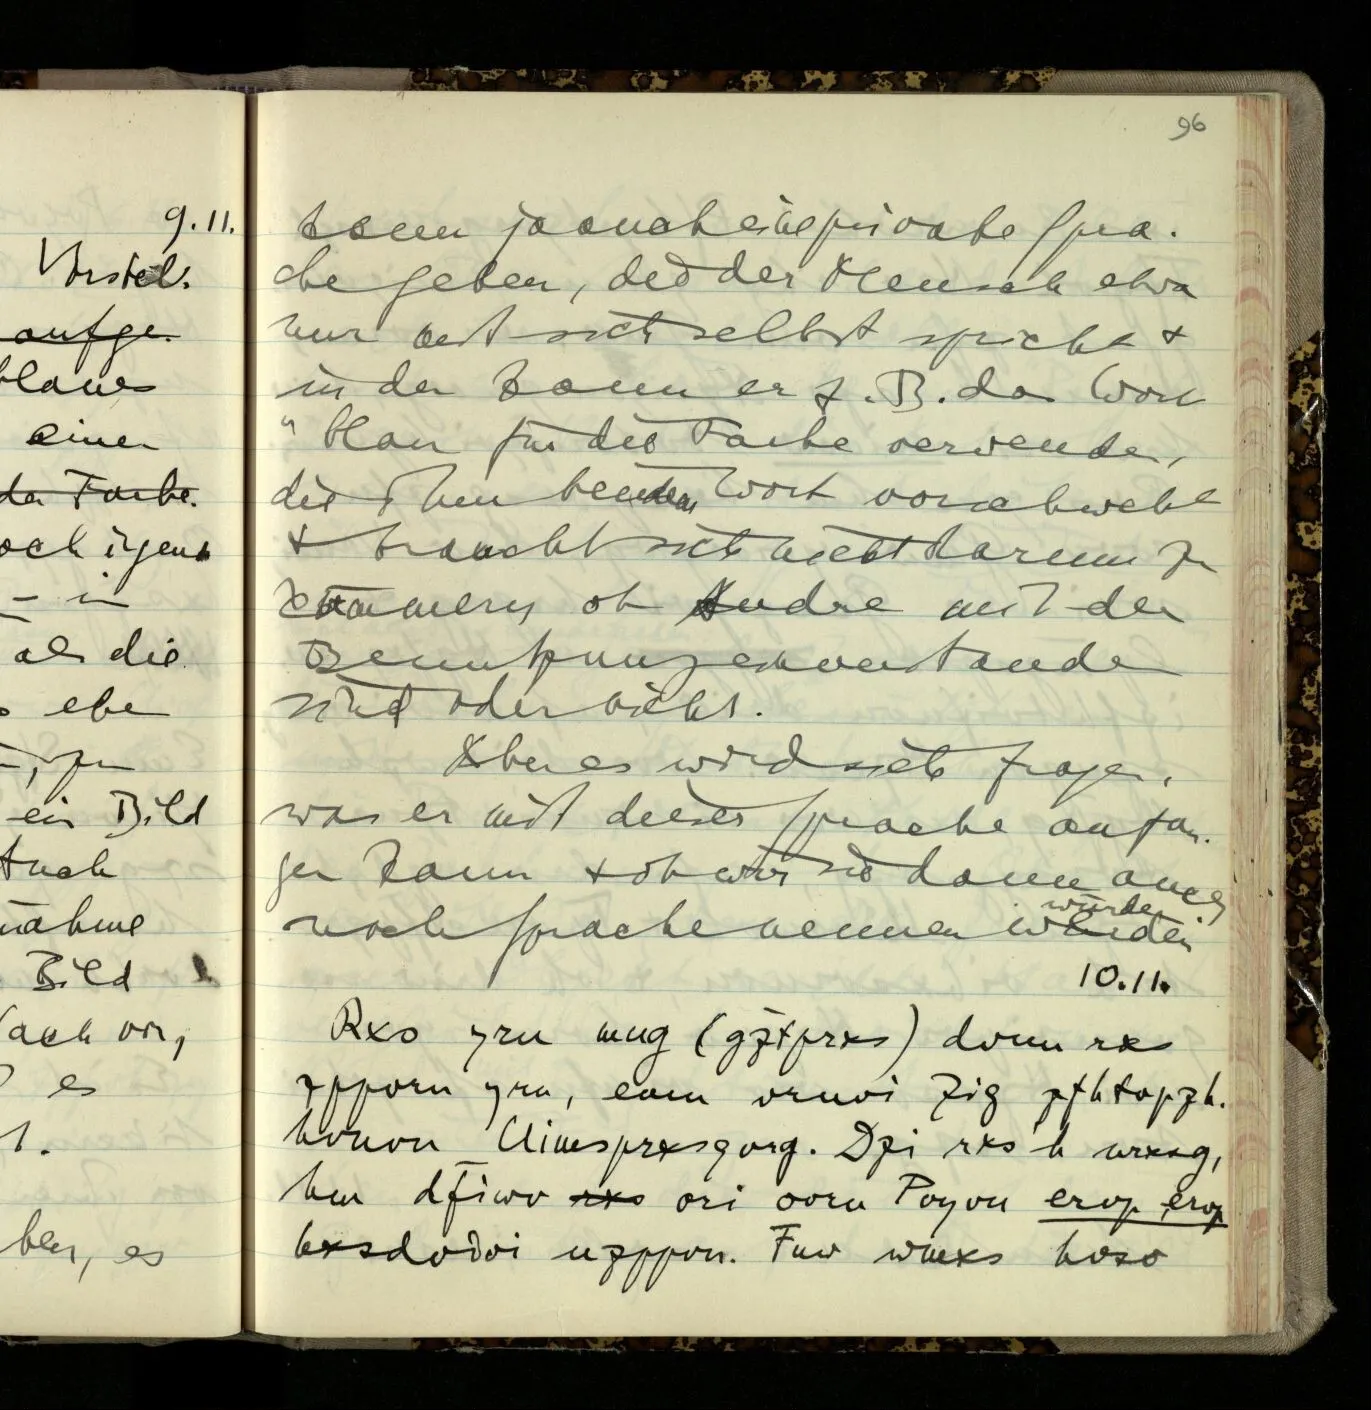 9.11.
Vorstel-
aufge-
blaues
einer
der Farbe.
och irgend
– in
als die
ebe
ein Bild
Buch
nähme
Bild
ach vor,
es
ben, es
96
kann ja auch eine private Spra-
che geben, die der Mensch etwa
nur mit sich selbst spricht &
in der kann er z.B. das Wort
"blau für die Farbe verwenden,
die ihm bei dem Wort vorschwebt
& braucht sich nicht darum zu
kümmern ob Andre mit der
Benutzung einverstanden
sind oder nicht.
Aber es wird sich fragen,
was er mit dieser Sprache anfan-
gen kann & ob wir sie dann auch
noch Sprache nennen würden
würden
10.11.
Rxs yrn mug (gztprxs) donn rxs
zpporn yrn, eom ornvi Zig pfhtopzh.
hvnon Uimsprxsqorg. Dzi rxs h wrxsg,
hm dfiwv rxs ori oorn Poyon erop, erop
hxsdodoi uzppon. Fnw wmxs hoso